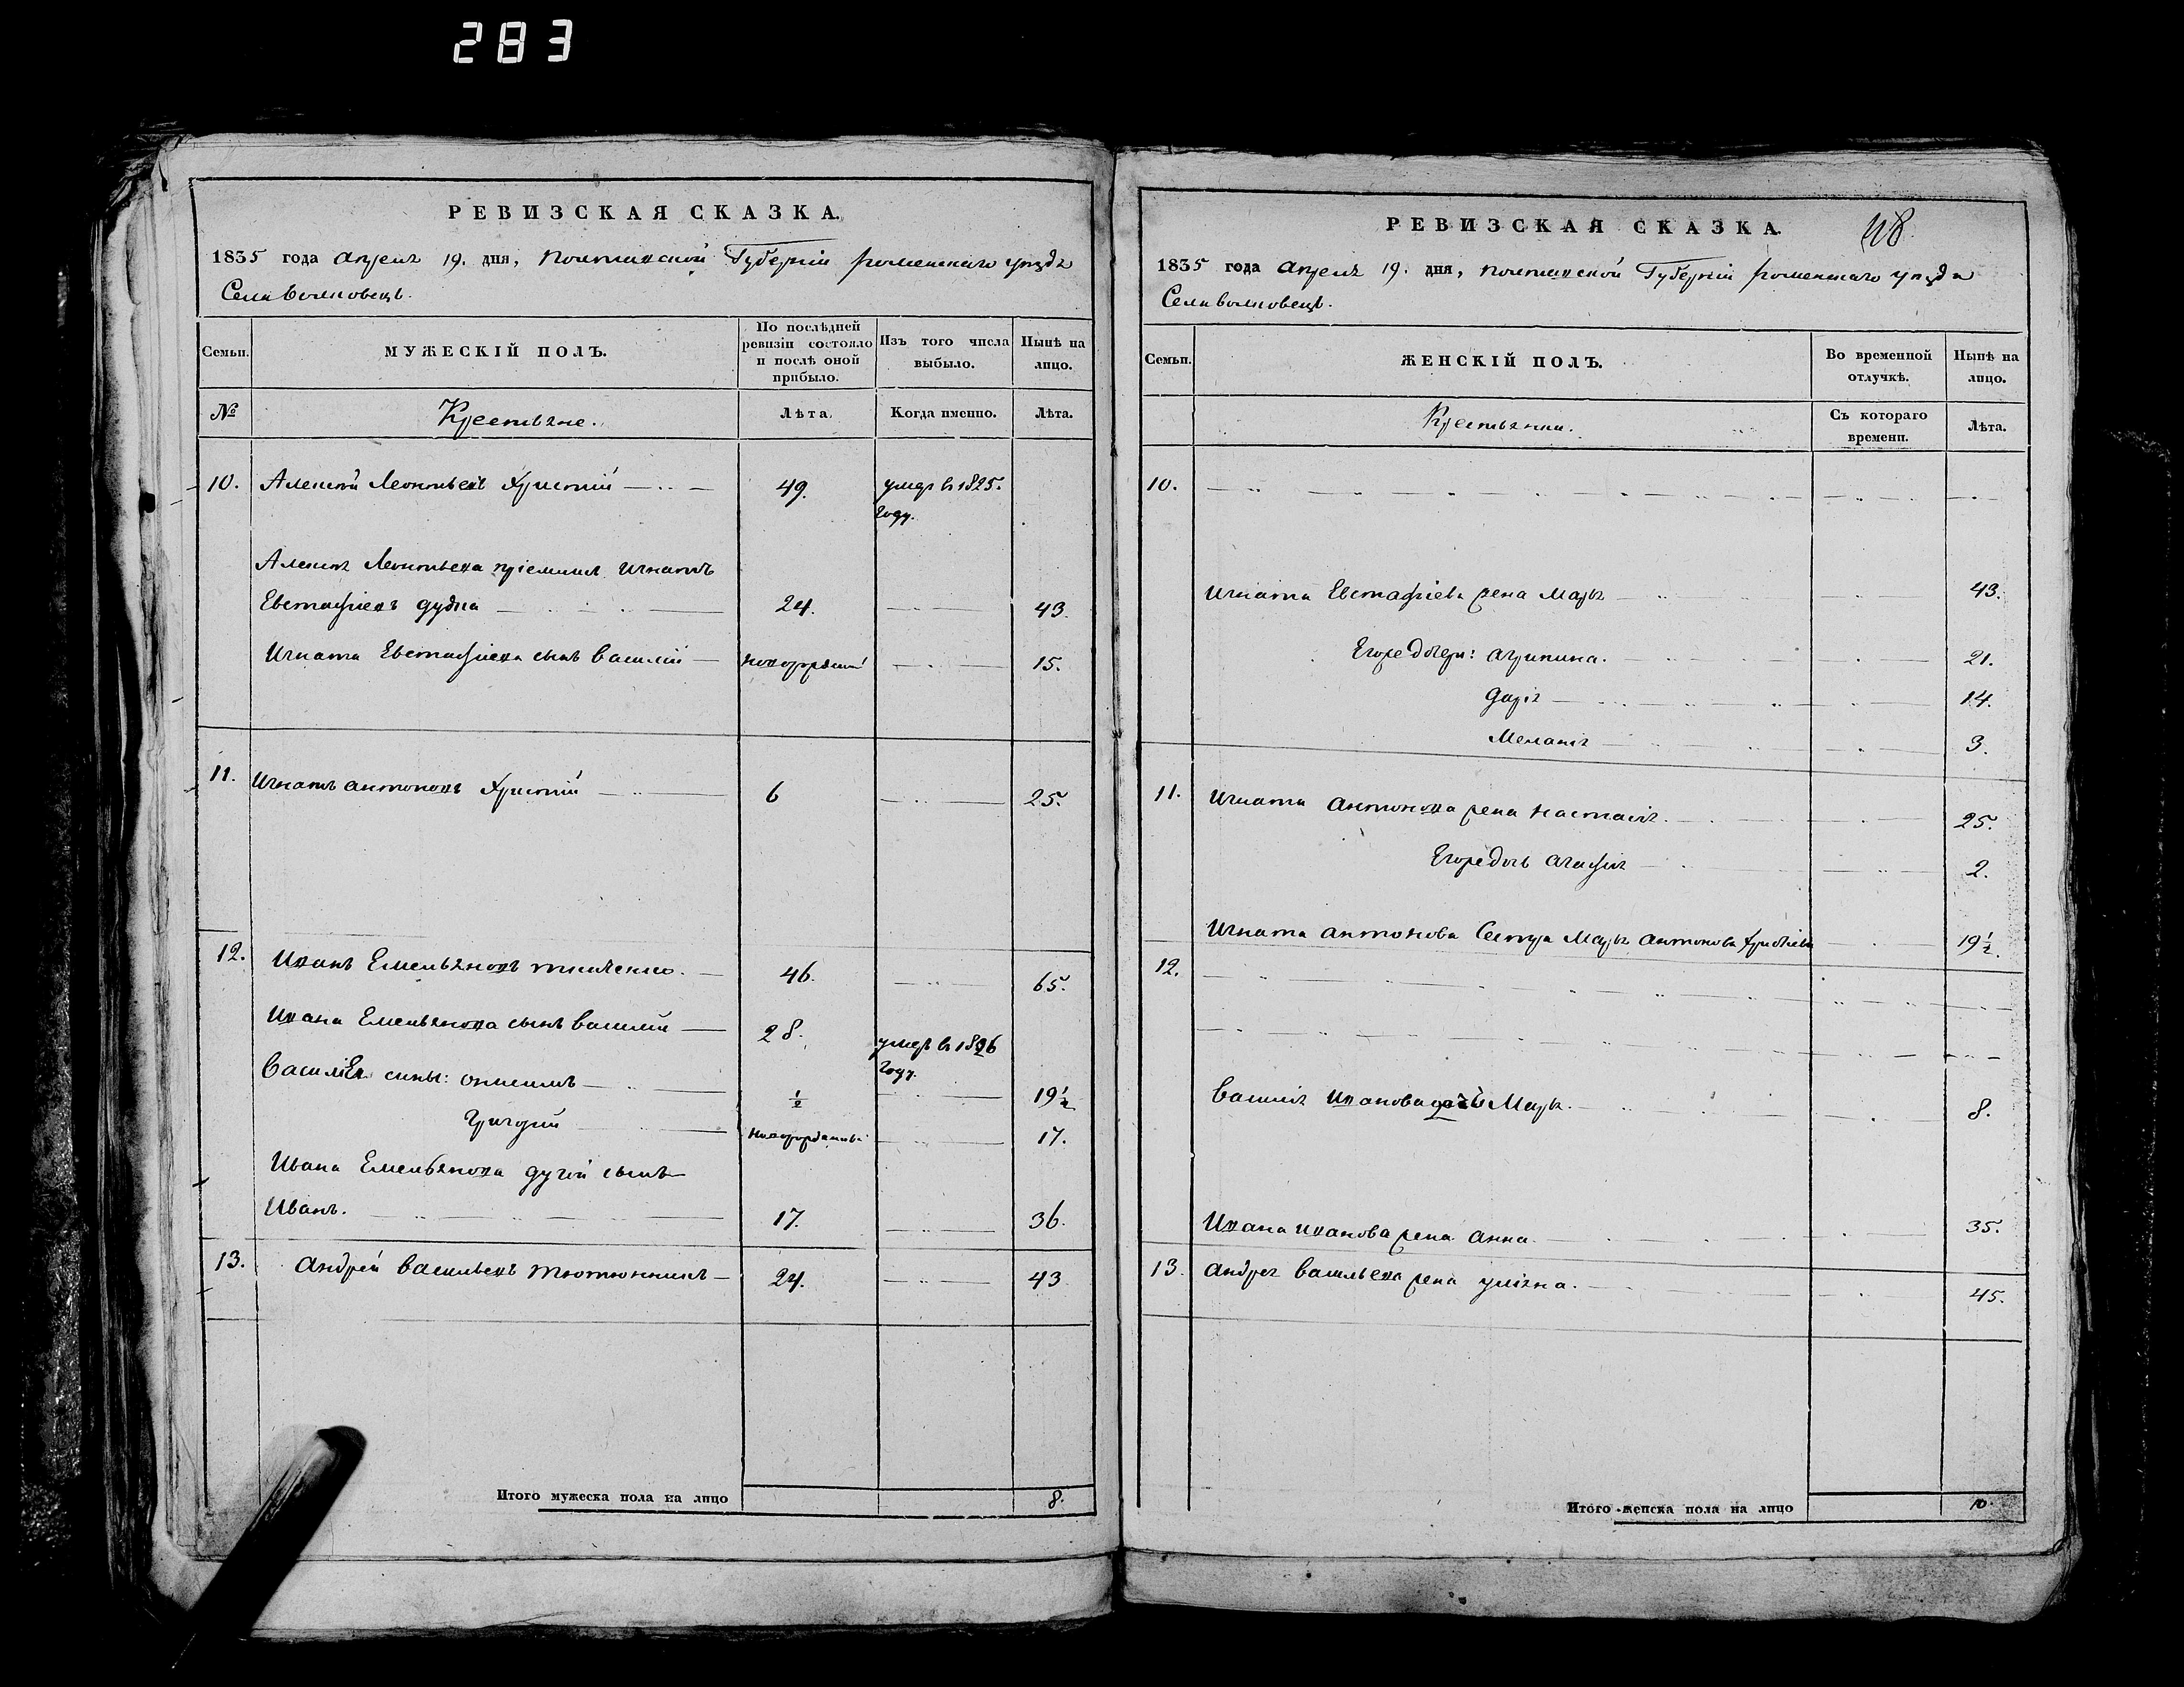 283
РЕВИЗСКАЯ СКАЗКА.
1835 года апреля 19. дня, Полтавской Губернiи роменскаго уезда
Села Волковецъ.
Семьи.
МУЖЕСКІЙ ПОЛЪ.
По послѣдней ревизіи состояло и послѣ оной прибыло.
Изъ того числа выбыло.
Нынѣ на лицо.
№
Крестьяне.
Лѣта.
Когда именно.
Лѣта.
10. Алексей Леонтьевъ Христiй 49. умеръ в 1825.
году.
Алексея Леонтьева прiемышъ Игнатъ
Евстафiевъ дудка 24. 43.
Игната Евстафiева сынъ Василiй новорожденный 15.
11. Игнатъ антоновъ Христiй 6 25.
12. Иванъ Емельяновъ 46. 65.
Ивана Емельянова сынъ Василий 28. умеръ в 1826
году.
Василiя сины: онисимъ ½ 19½
Григорий 17.
Ивана Емельянова другой сынъ
Иванъ. 17. 36.
13. Андрей Васильевъ Тютюнникъ 24. 43
Итого мужеска пола на лицо 8.
РЕВИЗСКАЯ СКАЗКА.
1835 года апреля 19. дня, полтавской Губернiи роменскаго уезда
Села волковецъ.
Семьи.
ЖЕНСКІЙ ПОЛЪ.
Во временной отлучкѣ.
Нынѣ на лицо.
Крестьянки.
Съ котораго времени.
Лѣта.
10.
Игната Евстафiева жена Марья 43.
Егоже дочери: агрипина. 21.
дарiя 14.
Меланiя 3.
11. Игната антонова жена настасiя. 25.
Егоже дочь агафiя 2.
Игната антонова Сестра Марья антонова 19½.
12.
Василия Иванова дочь Марья. 8.
Ивана иванова жена анна. 35.
13. андрея Васильева жена улiяна. 45.
Итого женска пола на лицо 10.